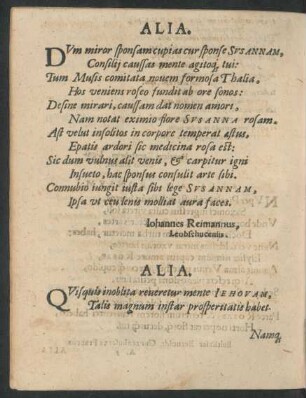 ALIA.
DVm miror sponsam cupias cur sponse SVSANNAM,
Consilij caussas mente agitoq; tui:
Tum Musis comitata novem formosa Thalia,
Hos veniens roseo fundit ab ore sonos:
Desine mirari, caussam dat nomen amori,
Nam notat eximio flore SVSANNA rosam.
Ast velut insolitos in corpore temperat æstus,
Epatis ardori sic medicina rosa est:
Sic dum vulnus alit venis, & carpitur igni
Insueto, hac sponsus consulit arte sibi.
Connubio iungit iusta sibi lege SVSANNAM,
Ipsa vt ceu lenis molliat aura faces.
Iohannes Reimannus,
Leobschucensis.
ALIA.
QVisquis inoblita reveretur mente IEHOVAM,
Talis magnum instar prosperitatis habet.
Namq;